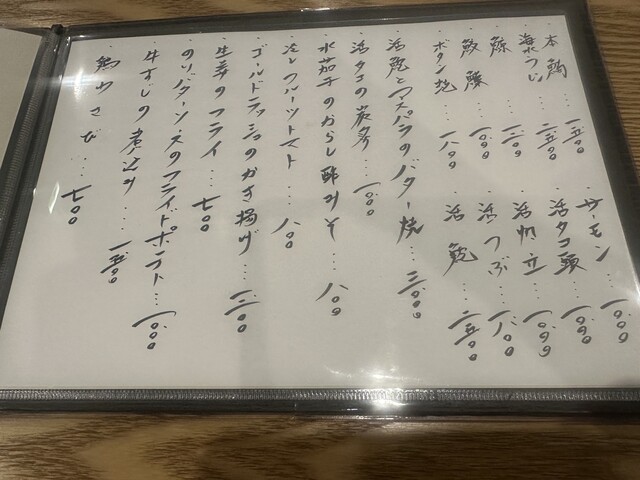 本鮪…
海水うに…
ボタン蛯…一八〇〇
サーモン…一、〇〇〇
活タコ頭…一、〇〇〇
活帆立…一、〇〇〇
活つぶ…一、八〇〇
活鮑…二、五〇〇
活鮑とアスパラのバター焼…三、〇〇〇
活タコの炭焼…一、〇〇〇
水茄子のからし酢みそ…八〇〇
冷しフルーツトマト…八〇〇
ゴールドラッシュのかき揚げ…一、二〇〇
生姜のフライ…七〇〇
のりバターソースのフライドポテト…一、〇〇〇
牛すじの煮込み…一、五〇〇
わさび…七〇〇